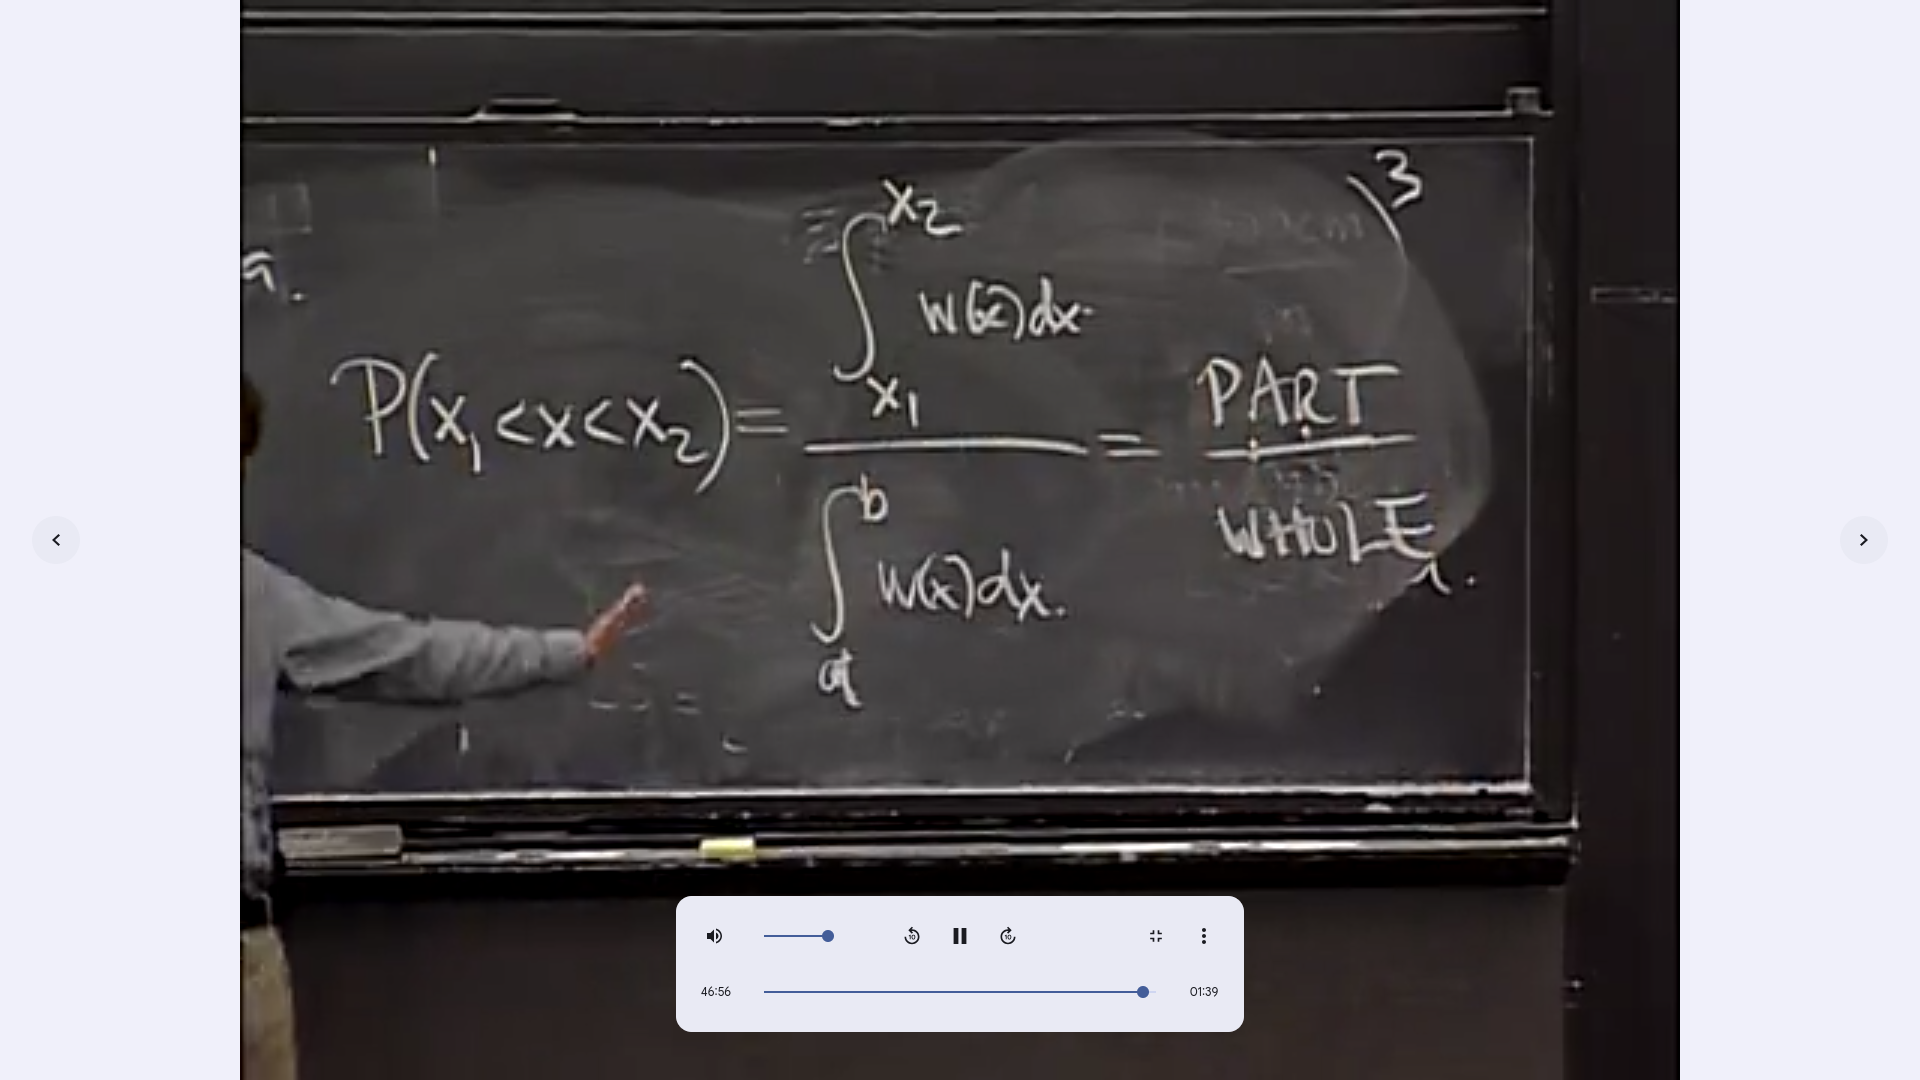 3
a.
P(x₁<x<x₂) = ∫_{x₁}^{x₂} w(x)dx / ∫_{a}^{b} w(x)dx. = PART / WHOLE
46:56
01:39